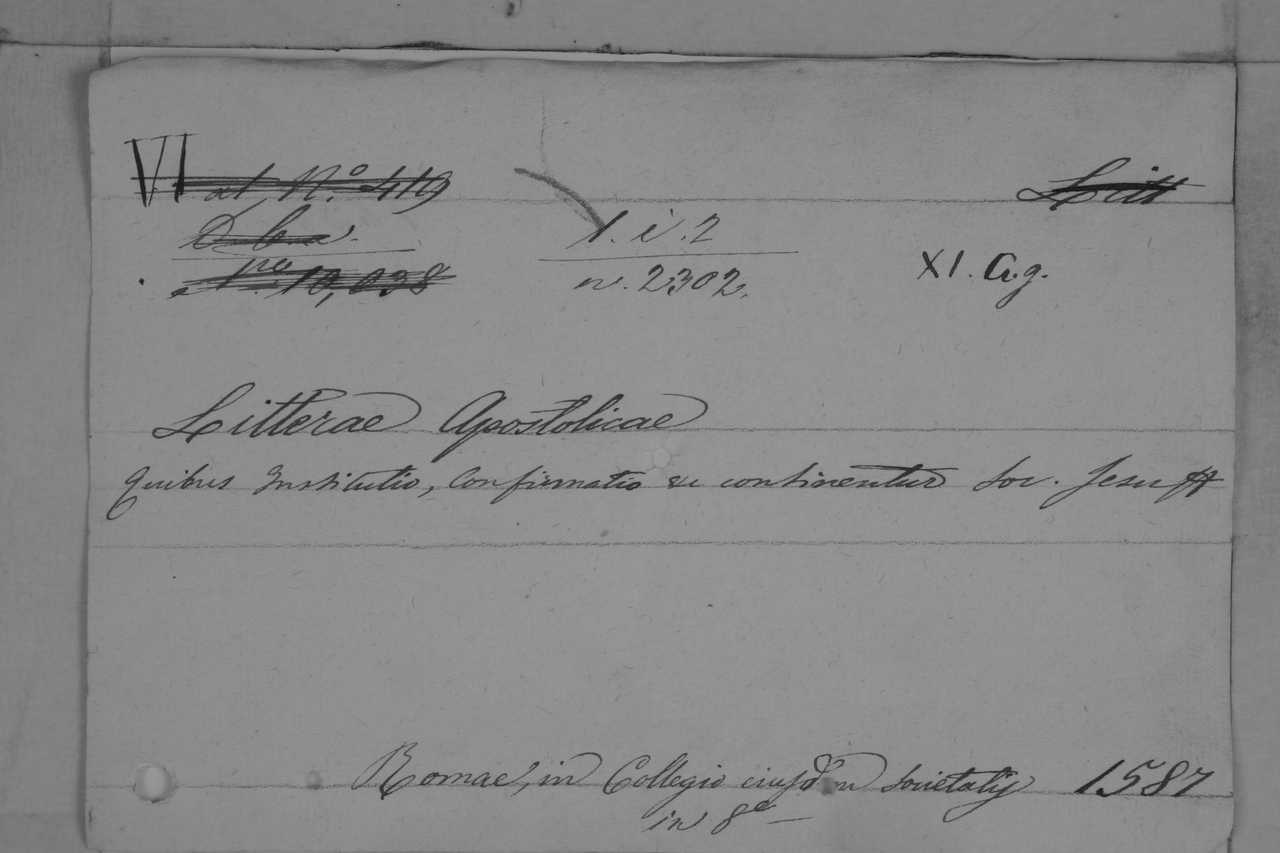 VI al N.º 419 Litt
D b a.
1. i. 2
nº 10,038 n. 2302. XI. a.g.
Litterae Apostolicae
Quibus Institutio, Confirmatio &c continentur Soc. Jesu
Romae, in Collegio eiusdem Societatis 1587
in 8º